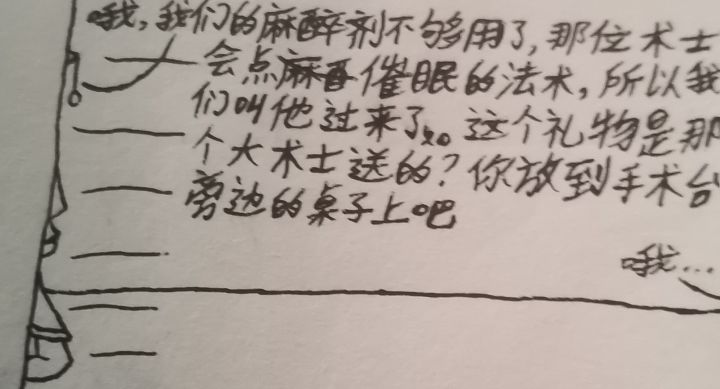 哦，我们的麻醉剂不够用了，那位术士
会点麻醉催眠的法术，所以我
们叫他过来了。这个礼物是那
个大术士送的？你放到手术台
旁边的桌子上吧
哦...